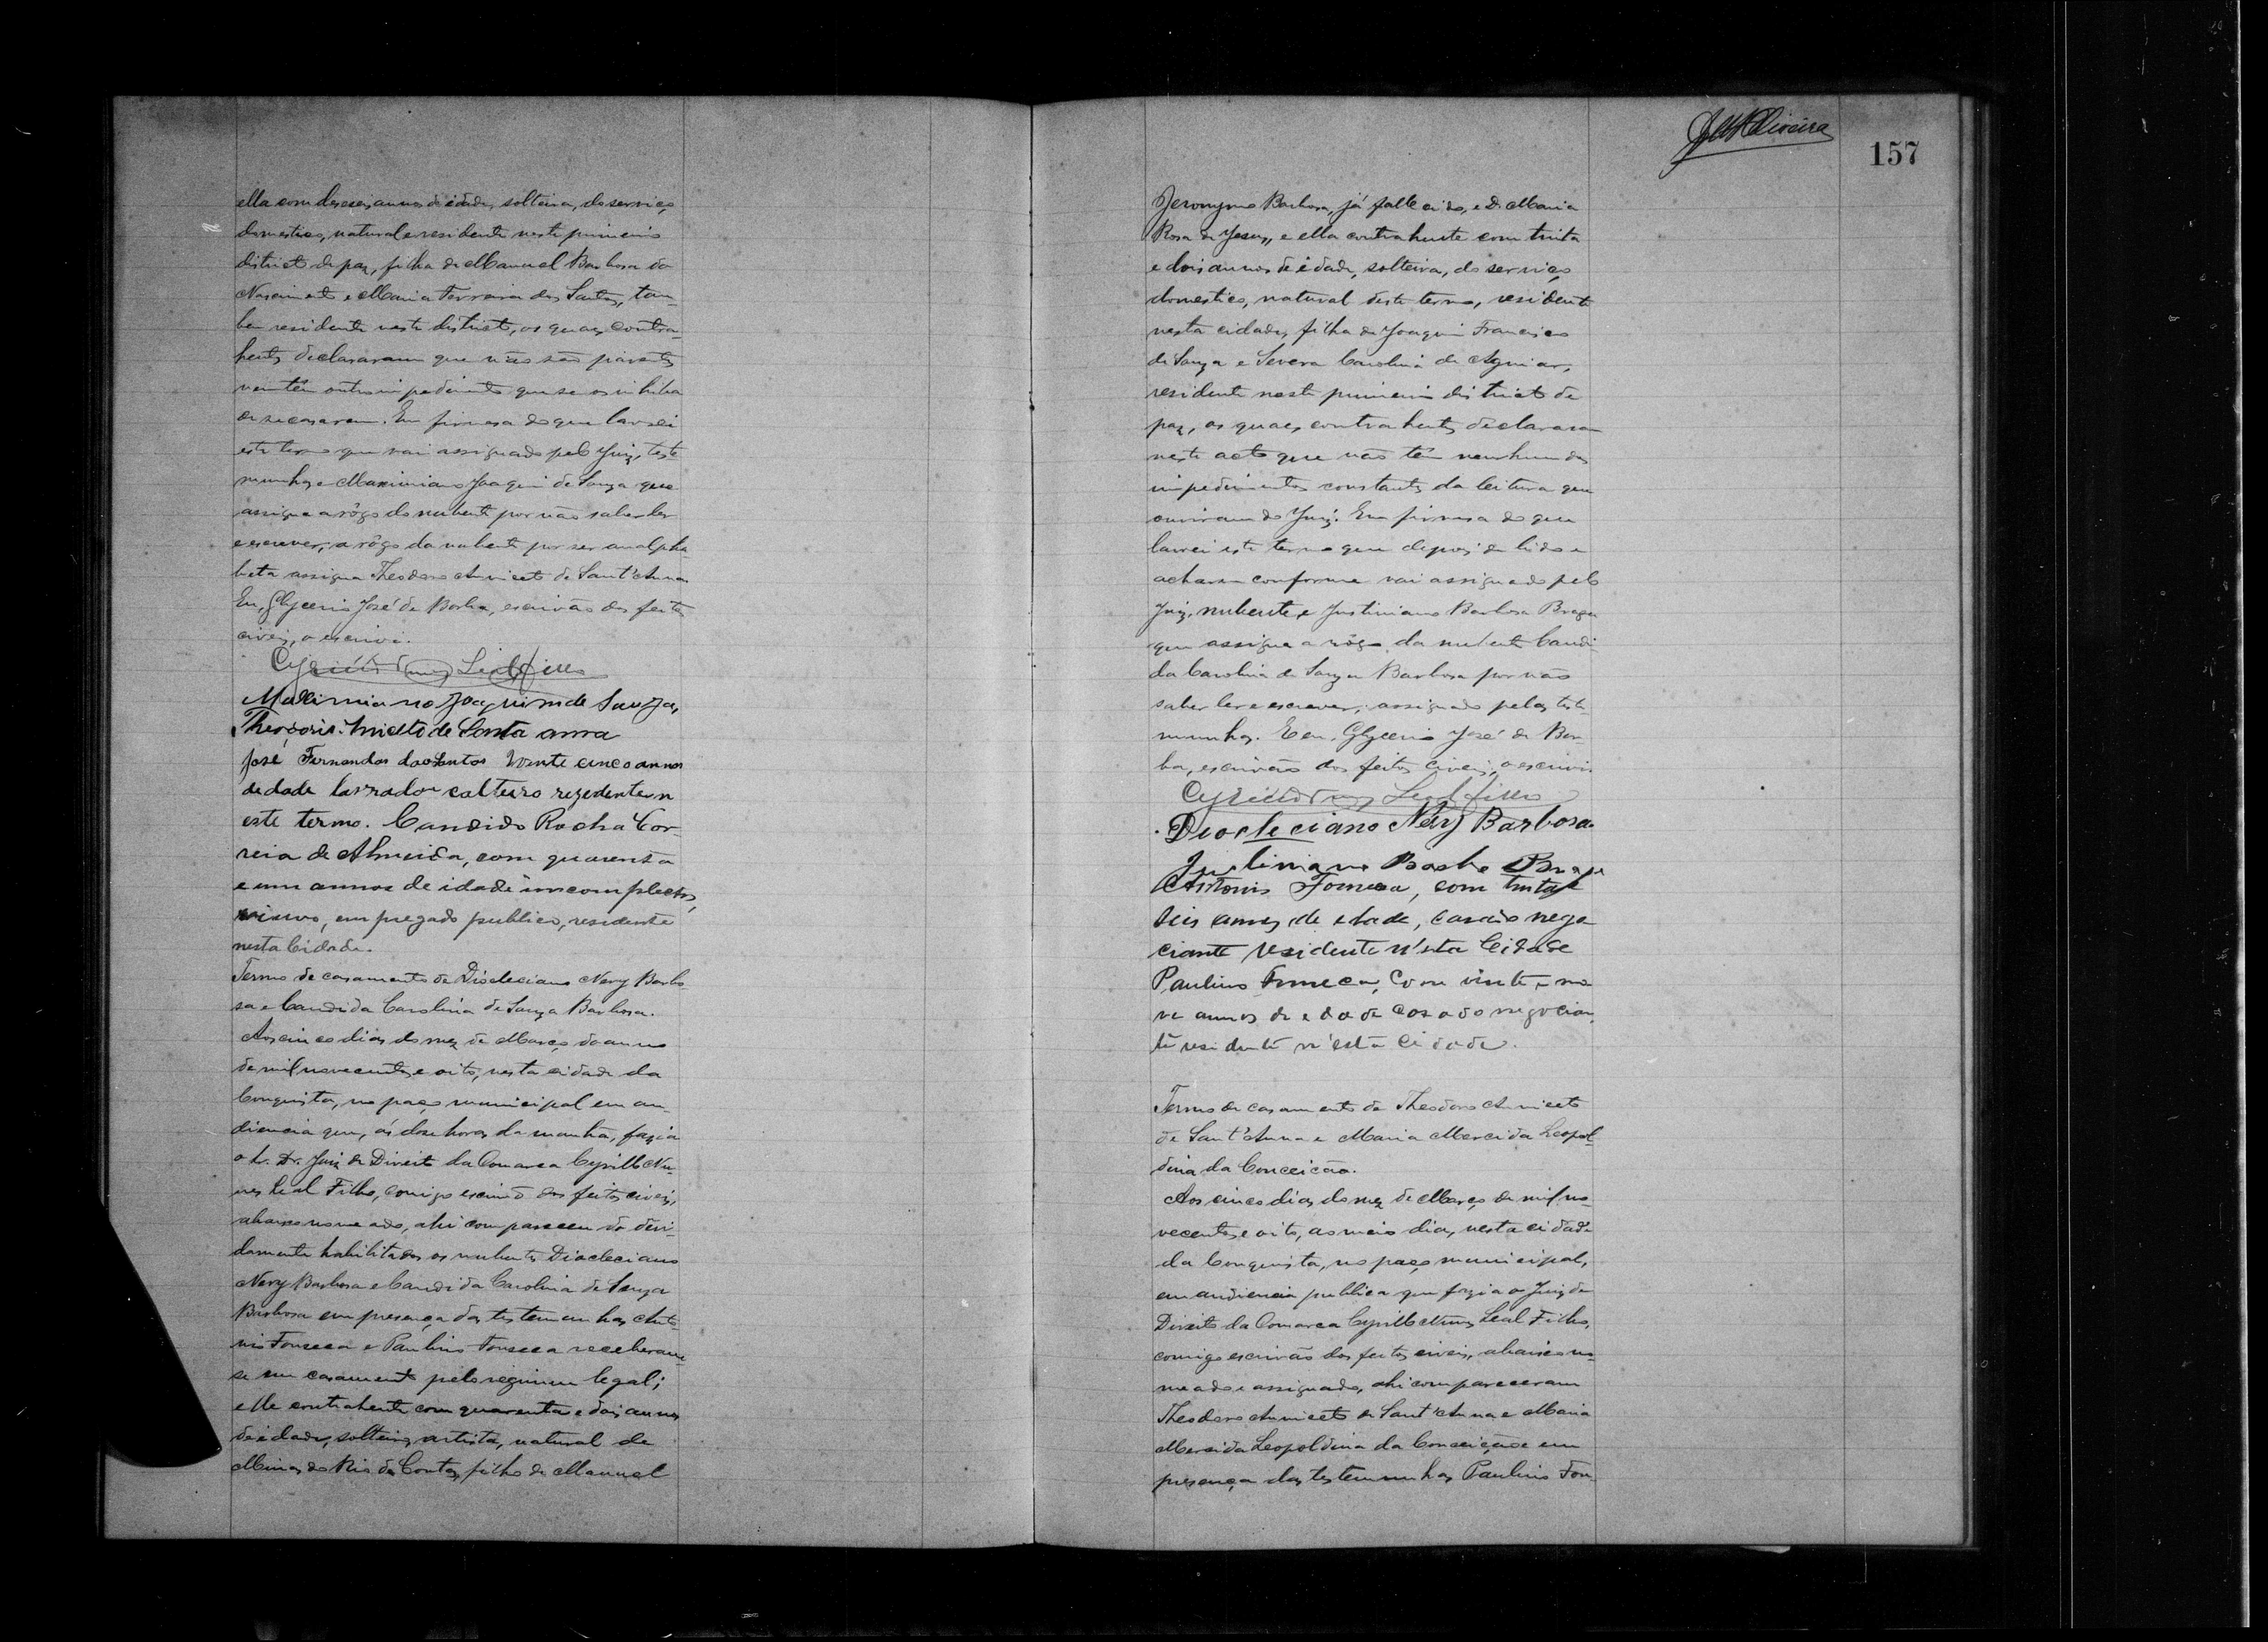 ella com deseseis annos de idade, solteira, do serviço
domestico, natural e residente neste primeiro
districto de paz, filha de Manuel Barbosa do
Nascimento e Maria Ferreira dos Santos, tam-
bem residente neste districto, os quaes contra-
hentes declararam que não são parentes
nem têm outro impedimento que se os inhiba
de se casarem. Em firmesa do que lavrei
este termo que vai assignado pelo Juiz, teste-
munhas e Maximiano Joaquim de Souza que
assigna a rôgo do nubente por não saber ler
e escrever; a rôgo da nubente por ser analpha-
beta assigna Theodoro Aniceto de Sant'Anna
Eu, Glycerio José da Borba, escrivão dos feitos
civeis, o escrivi.
Cyrillo Nunes Leal Filho
Maximiano Joaquim de Souza,
Theodoro Anicto de Santa anna
José Fernandes dos Santos vente cinco annos
dedade lavrador calteiro rezedente n
este termo. Candido Rocha Cor-
reia de Almeida, com quarenta
e um annos de idade imcomplectos,
viuvo, empregado publico, residente
nesta Cidade.
Termo de casamento de Diocleciano Nery Barbo-
sa e Candida Carolina de Souza Barbosa.
Aos cinco dias do mez de Março do anno
de mil novecentos e oito, nesta cidade da
Conquista, no paço municipal em au-
diencia que, ás dose horas da manhã, fazia
o Dr. Juiz de Direito da Comarca Cyrillo Nu-
nes Leal Filho, comigo escrivão dos feitos civeis,
abaixo nomeado, ahi comparecendo devi-
damente habilitados os nubentes Diocleciano
Nery Barbosa e Candida Carolina de Souza
Barbosa em presença das testemunhas Anto-
nio Fonseca e Paulino Fonseca receberam-
se em casamento pelo regimen legal;
elle contrahente com quarenta e dois annos
de idade, solteiro, artista, natural de
Minas do Rio de Contas, filho de Manuel
JMOliveira
157
Jeronymo Barbosa, já fallecido, e D. Maria
Rosa de Jesus, e ella contrahente com trinta
e dois annos de idade, solteira, do serviço
domestico, natural deste termo, residente
nesta cidade, filha de Joaquim Francisco
de Souza e Severa Carolina de Aguiar,
residente neste primeiro districto de
paz, os quaes contrahentes declararam
neste acto que não têm nenhum dos
impedimentos constantes da leitura que
ouviram do Juiz. Em firmesa do que
lavrei este termo que depois de lido e
acharem conforme vai assignado pelo
Juiz, nubente e Justiniano Barbosa Braga
que assigna a rôgo da nubente Candi-
da Carolina de Souza Barbosa por não
saber ler e escrever; assignado pelas teste-
munhas. E eu, Glycerio José da Bor-
ba, escrivão dos feitos civeis, o escrivi
Cyrillo Nunes Leal Filho
Diocleciano Nery Barbosa
Justiniano Barbosa Braga
Antonio Fonseca, com trinta e
seis annos de edade, casado nego-
ciante residente n'esta Cidade
Paulino Fonseca, Com vinte e no
ve annos de edade casado negocian
te residente n'esta Cidade.
Termo de casamento de Theodoro Aniceto
de Sant'Anna e Maria Mercida Leopol-
dina da Conceicão.
Aos cinco dias do mez de Março de mil no-
vecentos e oito, ao meio dia, nesta cidade
da Conquista, no paço municipal,
em audiencia publica que fazia o Juiz de
Direito da Comarca Cyrillo Nunes Leal Filho,
comigo escrivão dos feitos civeis, abaixo no-
meado e assignado, ahi compareceram
Theodoro Aniceto de Sant'Anna e Maria
Mercida Leopoldina da Conceição e em
presença das testemunhas Paulino Fon-